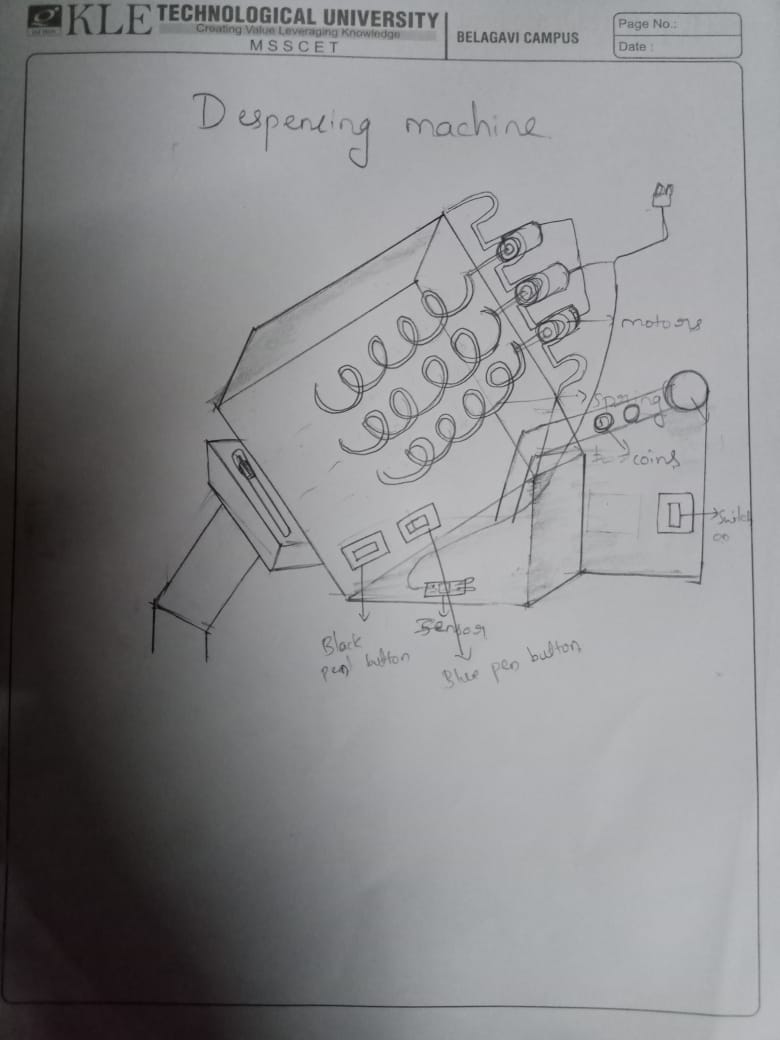 KLE TECHNOLOGICAL UNIVERSITY
Creating Value Leveraging Knowledge
MSSCET
BELAGAVI CAMPUS
Page No.:
Date :
Despencing machine
motors
Spring
coins
Switch
on
Sensor
Black
pen button
Blue pen button